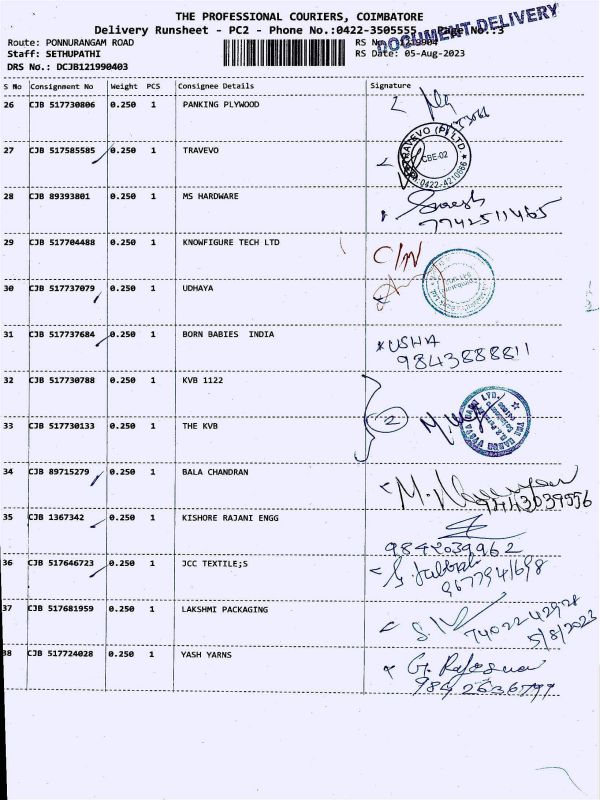 THE PROFESSIONAL COURIERS, COIMBATORE
Delivery Runsheet - PC2 - Phone No.:0422-3505555 Page No.:3
DOCUMENT DELIVERY
Route: PONNURANGAM ROAD RS No.
Staff: SETHUPATHI RS Date: 05-Aug-2023
DRS No.: DCJB121990403
S No Consignment No Weight PCS Consignee Details Signature
26 CJB 517730806 0.250 1 PANKING PLYWOOD
27 CJB 517585585 0.250 1 TRAVEVO
TRAVEVO (P) LTD.
CBE-02
28 CJB 89393801 0.250 1 MS HARDWARE Suresh
7742511465
29 CJB 517704488 0.250 1 KNOWFIGURE TECH LTD
30 CJB 517737079 0.250 1 UDHAYA
31 CJB 517737684 0.250 1 BORN BABIES INDIA USHA
9843888811
32 CJB 517730788 0.250 1 KVB 1122
2
33 CJB 517730133 0.250 1 THE KVB
34 CJB 89715279 0.250 1 BALA CHANDRAN
9443039556
35 CJB 1367342 0.250 1 KISHORE RAJANI ENGG
9842039962
36 CJB 517646723 0.250 1 JCC TEXTILE;S
37 CJB 517681959 0.250 1 LAKSHMI PACKAGING
7402242928
5/8/2023
38 CJB 517724028 0.250 1 YASH YARNS